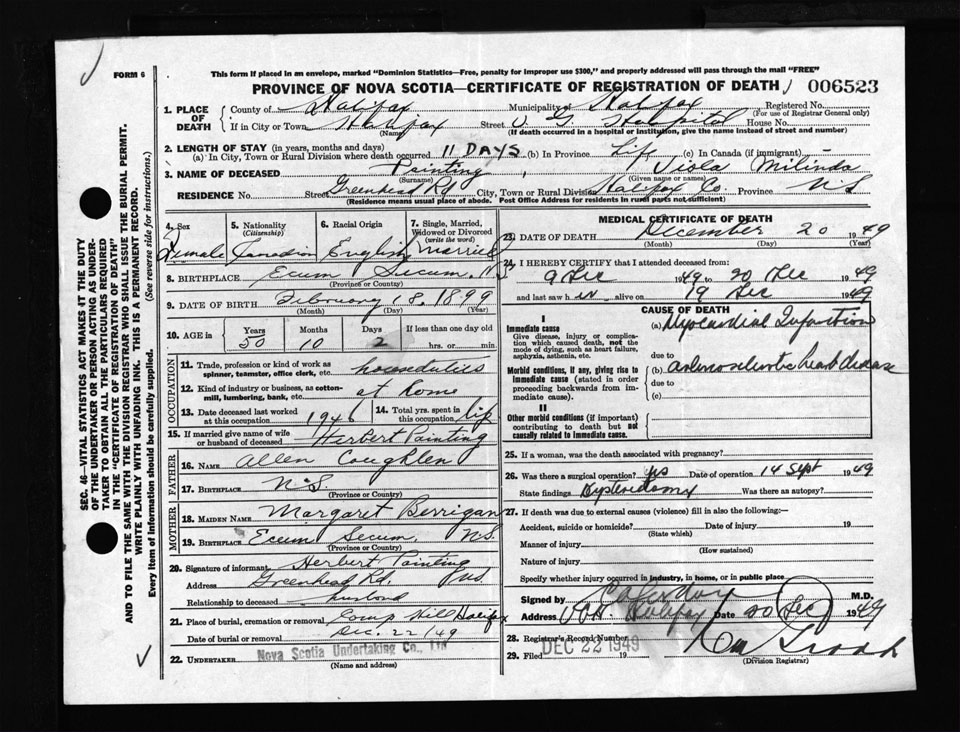 FORM 6
This form if placed in an envelope, marked "Dominion Statistics—Free, penalty for improper use $300," and properly addressed will pass through the mail "FREE"
PROVINCE OF NOVA SCOTIA—CERTIFICATE OF REGISTRATION OF DEATH
006523
1. PLACE OF DEATH
County of Halifax Municipality Halifax Registered No.
(For use of Registrar General only)
If in City or Town Halifax Street V G Hospital House No.
(Name) (If death occurred in a hospital or institution, give the name instead of street and number)
2. LENGTH OF STAY (in years, months and days)
(a) In City, Town or Rural Division where death occurred 11 DAYS (b) In Province Life (c) In Canada (if immigrant)
3. NAME OF DECEASED Painting, Viola Milinda
(Surname) (Given name or names)
RESIDENCE No. Street Greenhead Rd City, Town or Rural Division Halifax Co. Province N S
(Residence means usual place of abode. Post Office Address for residents in rural parts not sufficient)
4. Sex
Female
5. Nationality
(Citizenship)
Canadian
6. Racial Origin
English
7. Single, Married, Widowed or Divorced
(write the word)
Married
8. BIRTHPLACE Ecum Secum, N.S
(Province or Country)
9. DATE OF BIRTH February 18, 1899
(Month) (Day) (Year)
10. AGE in
Years Months Days If less than one day old
50 10 2 hrs. or min.
OCCUPATION
11. Trade, profession or kind of work as spinner, teamster, office clerk, etc. houseduties
12. Kind of industry or business, as cotton-mill, lumbering, bank, etc. at home
13. Date deceased last worked at this occupation 1946
14. Total yrs. spent in this occupation life
15. If married give name of wife or husband of deceased Herbert Painting
FATHER
16. NAME Allen Coughlen
17. BIRTHPLACE N.S.
(Province or Country)
MOTHER
18. MAIDEN NAME Margaret Berrigan
19. BIRTHPLACE Ecum Secum, N.S.
(Province or Country)
20. Signature of informant Herbert Painting
Address Greenhead Rd,
Relationship to deceased husband
21. Place of burial, cremation or removal Camp Hill Halifax
Date of burial or removal Dec. 22/49
22. UNDERTAKER Nova Scotia Undertaking Co., Ltd
(Name and address)
MEDICAL CERTIFICATE OF DEATH
23. DATE OF DEATH December 20 1949
(Month) (Day) (Year)
24. I HEREBY CERTIFY that I attended deceased from:
9 Dec 1949 to 20 Dec 1949
and last saw her alive on 19 Dec 1949
CAUSE OF DEATH
I
Immediate cause
Give disease, injury or complication which caused death, not the mode of dying, such as heart failure, asphyxia, asthenia, etc.
(a) Myocardial Infarction
due to
Morbid conditions, if any, giving rise to immediate cause (stated in order proceeding backwards from immediate cause).
(b) arteriosclerotic heart disease
due to
(c)
II
Other morbid conditions (if important) contributing to death but not causally related to immediate cause.
25. If a woman, was the death associated with pregnancy?
26. Was there a surgical operation? yes Date of operation 14 Sept 1949
State findings Was there an autopsy?
27. If death was due to external causes (violence) fill in also the following:—
Accident, suicide or homicide? Date of injury 19
(State which)
Manner of injury
(How sustained)
Nature of injury
Specify whether injury occurred in industry, in home, or in public place
Signed by M.D.
Address V G H. Halifax Date 20 Dec 1949
28. Registrar's Record Number
29. Filed DEC 22 1949 19
(Division Registrar)
SEC. 46—VITAL STATISTICS ACT MAKES IT THE DUTY
OF THE UNDERTAKER OR PERSON ACTING AS UNDER-
TAKER TO OBTAIN ALL THE PARTICULARS REQUIRED
IN THE "CERTIFICATE OF REGISTRATION OF DEATH"
AND TO FILE THE SAME WITH THE DIVISION REGISTRAR WHO SHALL ISSUE THE BURIAL PERMIT.
WRITE PLAINLY WITH UNFADING INK. THIS IS A PERMANENT RECORD.
Every item of Information should be carefully supplied. (See reverse side for instructions.)